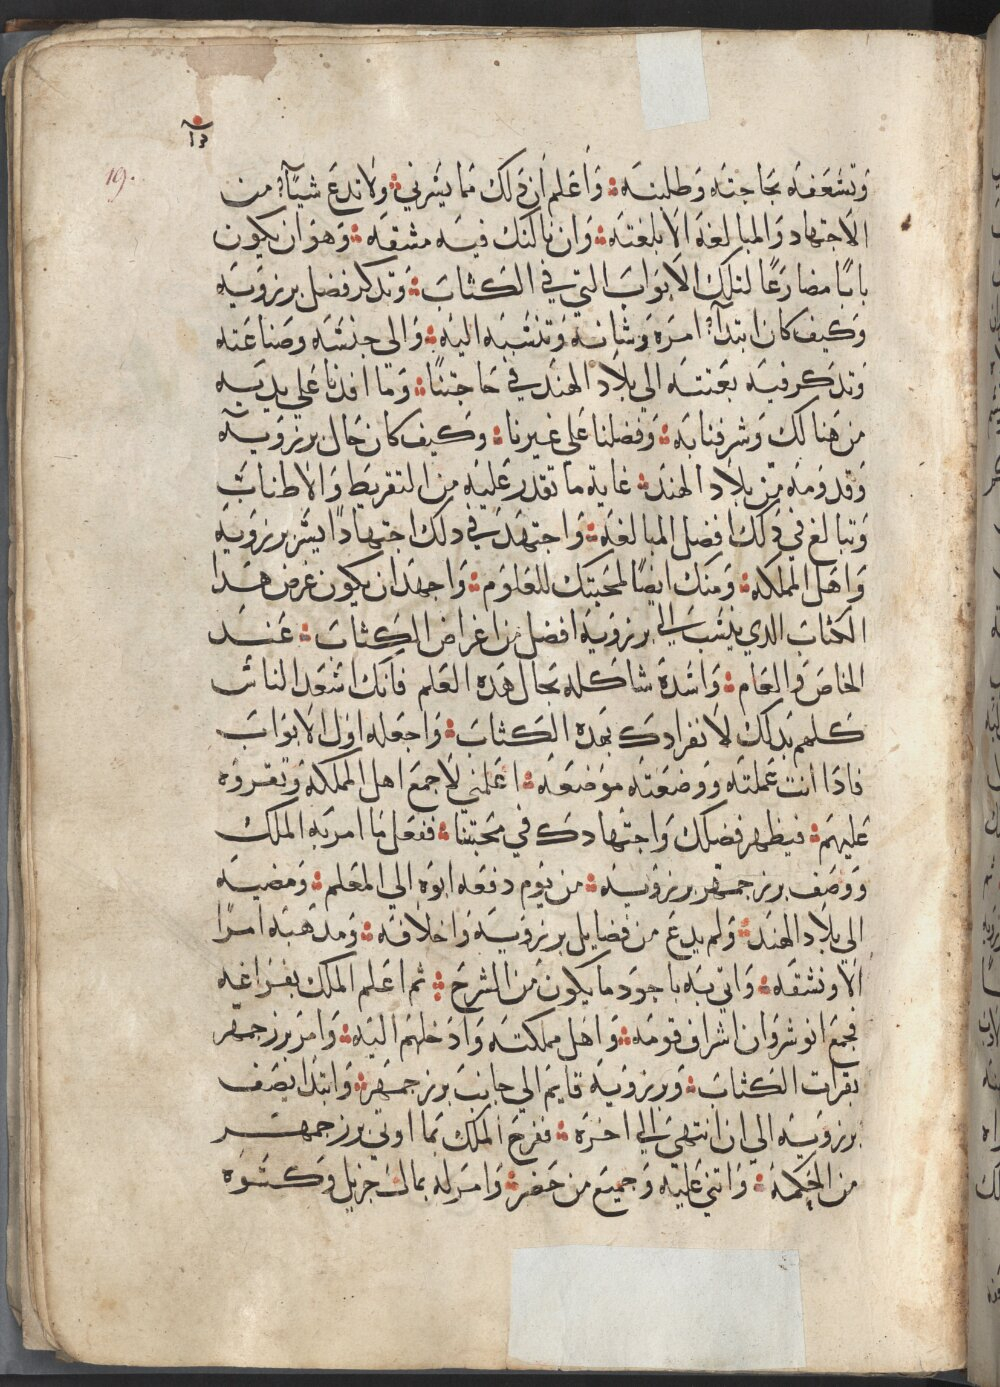 19.
وتسعفه بحاجته وطلبته واعلم ان ذلك مما يسرني ولا تدع شيآ من
الاجتهاد والمبالغه الا بلغته وان نالك فيه مشقه وهو ان يكون
بابًا مضارعًا لتلك الابواب التي في الكتاب وتذكر فضل برزويه
وكيف كان ابتدآ امره وشانه وتنسبه اليه والى جنسه وصناعته
وتذكر فيه بعثته الي بلاد الهند في حاجتنا وما افدنا علي يديه
من هنالك وشرفنا به وفضلنا على غيرنا وكيف كان حال برزويه
وقدومه من بلاد الهند غاية ما تقدر عليه من التقريط والاطناب
وتبالغ في ذلك افضل المبالغه واجتهد في دلك اجتهادًا يسر برزويه
واهل المملكه ومنك ايضًا لمحبتك للعلوم واجهد ان يكون غرض هدا
الكتاب الدي ينسب الي برزويه افضل من اغراض الكتاب عند
الخاص والعام واشده شاكله بحال هده العلم فانك اسعد الناس
كلهم بدلك لانفرادك بهده الكتاب واجعله اول الابواب
فادا انت عملته ووضعته موضعه اعلمني لاجمع اهل المملكه وتقروه
عليهم فيظهر فضلك واجتهادك في محبتنا ففعل ما امر به الملك
ووصف برزجمهر برزويه من يوم دفعه ابوه الي المعلم ومضيه
الي بلاد الهند ولم يدع من فضايل برزويه واخلاقه ومدهبه امرًا
الا ونسقه واتي به باجود ما يكون من الشرح ثم اعلم الملك بفراغه
فجمع انوشروان اشراف قومه واهل مملكته وادخلهم اليه وامر برزجمهر
بقرات الكتاب وبرزويه قايم الي جانب برزجمهر وابتدا بصف
برزويه الي ان انتهى الي اخره ففرح الملك بما اوتي برزجمهر
من الحكمه واثني عليه وجميع من حضر وامر له بمال جزيل وكسوه